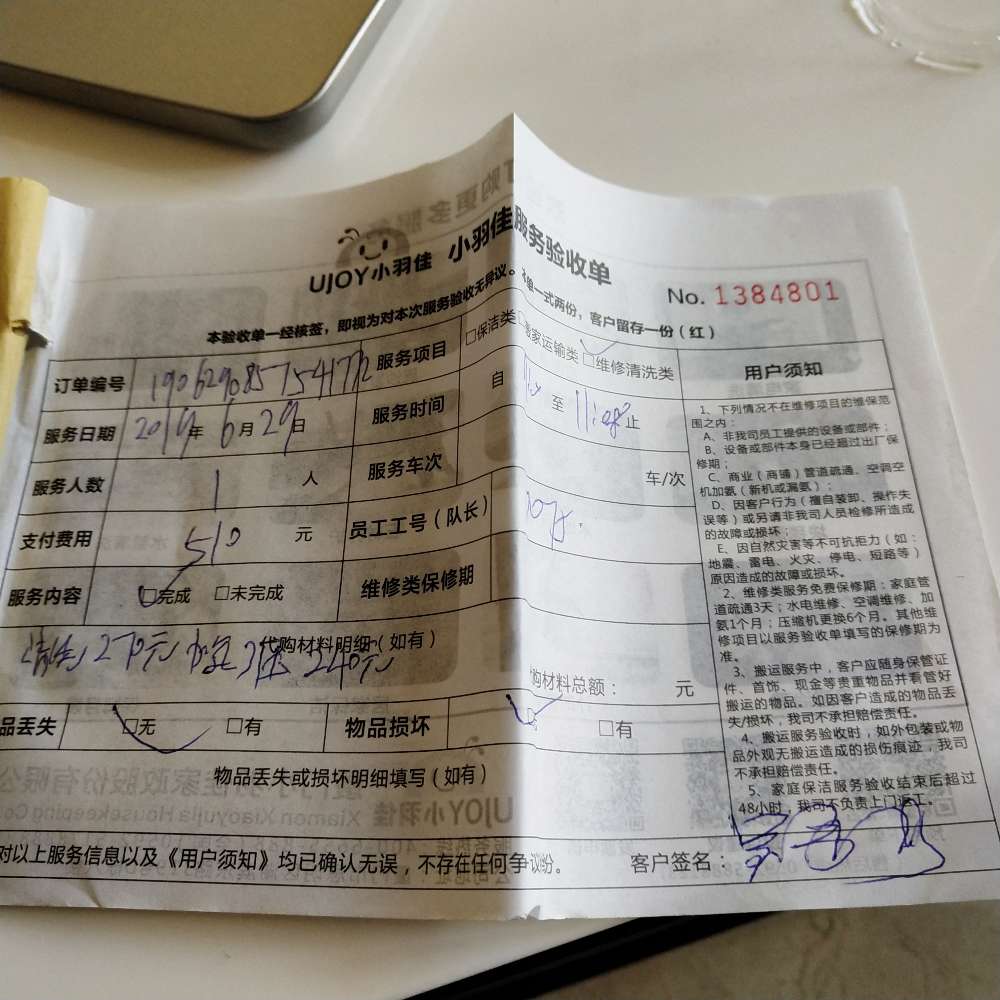 UJOY小羽佳 小羽佳服务验收单
No. 1384801
本验收单一经核签，即视为对本次服务验收无异议。本单一式两份，客户留存一份（红）
订单编号 服务项目 □保洁类 搬家运输类 □维修清洗类
服务日期 2019年 6月29日 服务时间 自 至 11:08止
服务人数 1 人 服务车次 车/次
支付费用 510 元 员工工号（队长）
服务内容 □完成 □未完成 维修类保修期
代购材料明细（如有）
270元 240元
购材料总额： 元
品丢失 □无 □有 物品损坏 □有
物品丢失或损坏明细填写（如有）
对以上服务信息以及《用户须知》均已确认无误，不存在任何争议纷。 客户签名：
用户须知
1、下列情况不在维修项目的维保范
围之内：
A、非我司员工提供的设备或部件；
B、设备或部件本身已经超过出厂保
修期；
C、商业（商铺）管道疏通、空调空
机加氨（新机或漏氨）；
D、因客户行为（擅自装卸、操作失
误等）或另请非我司人员检修所造成
的故障或损坏；
E、因自然灾害等不可抗拒力（如：
地震、雷电、火灾、停电、短路等）
原因造成的故障或损坏。
2、维修类服务免费保修期：家庭管
道疏通3天；水电维修、空调维修、加
氨1个月；压缩机更换6个月。其他维
修项目以服务验收单填写的保修期为
准。
3、搬运服务中，客户应随身保管证
件、首饰、现金等贵重物品并看管好
搬运的物品。如因客户造成的物品丢
失/损坏，我司不承担赔偿责任。
4、搬运服务验收时，如外包装或物
品外观无搬运造成的损伤痕迹，我司
不承担赔偿责任。
5、家庭保洁服务验收结束后超过
48小时，我司不负责上门返工。